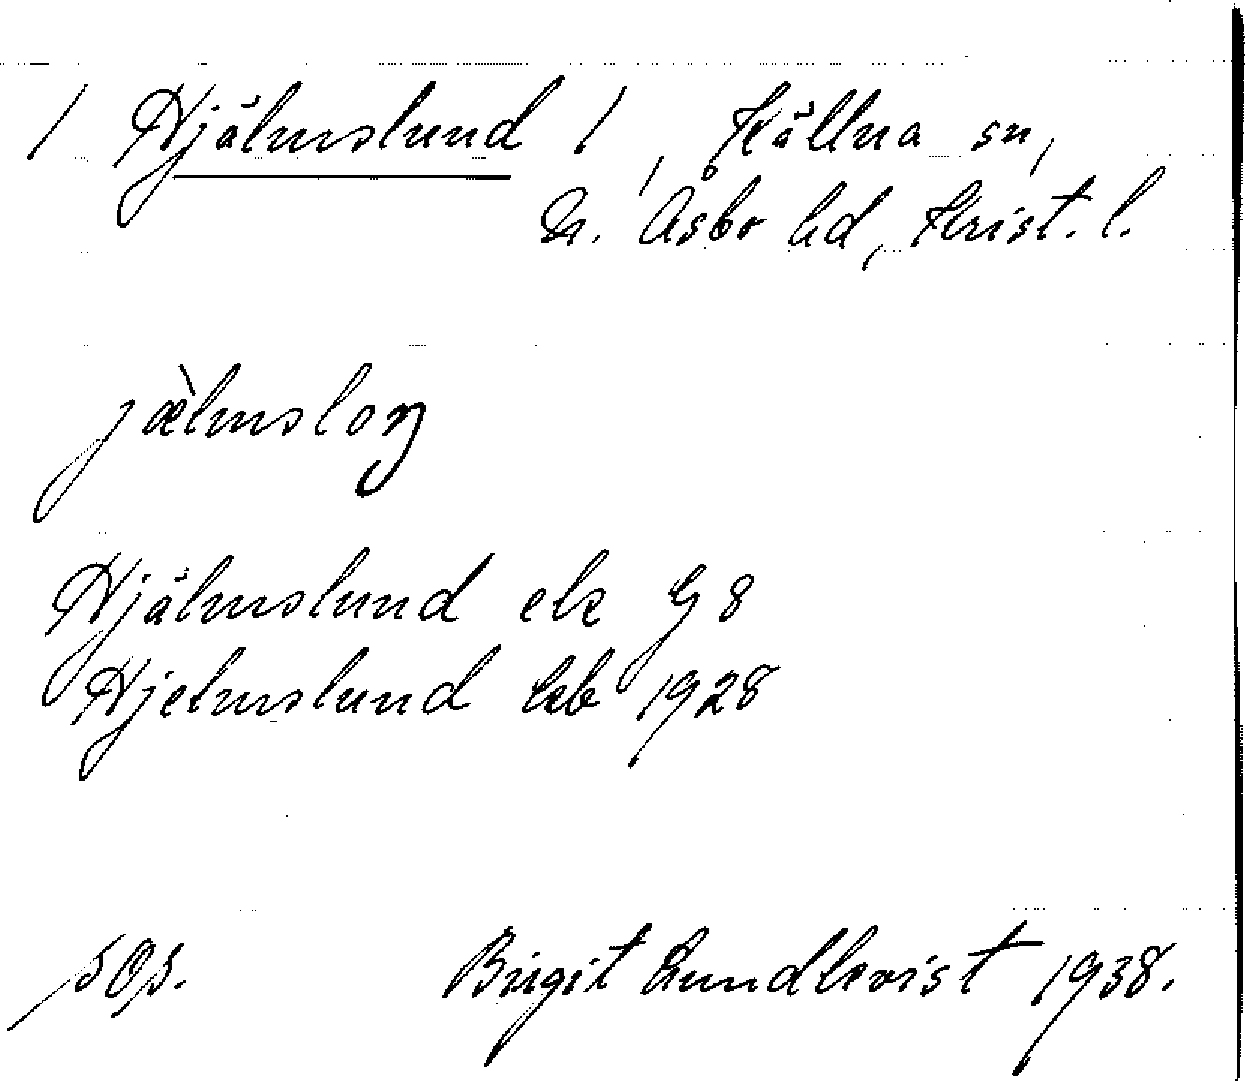 / Hjälmslund /, Källna sn,
N. Åsbo hd, Krist. l.
jæ̀lmsloŋ
Hjälmslund ek G 8
Hjelmslund
1928
sOs. Birgit Lundkvist 1938.